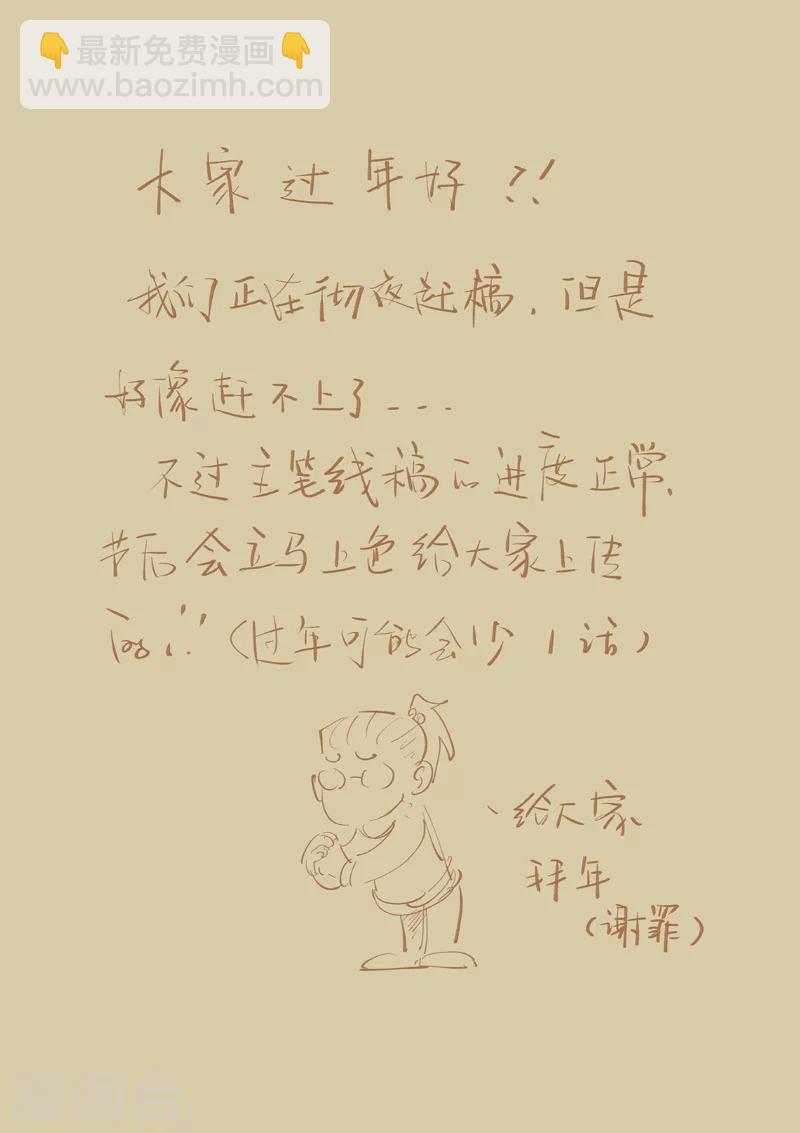 👇最新免费漫画👇
www.baozimh.com
大家过年好!!
我们正在彻夜赶稿，但是
好像赶不上了---
不过主笔线稿的进度正常，
节后会立马上色给大家上传
的!!（过年可能会少1话）
给大家
拜年
（谢罪）
漫画台